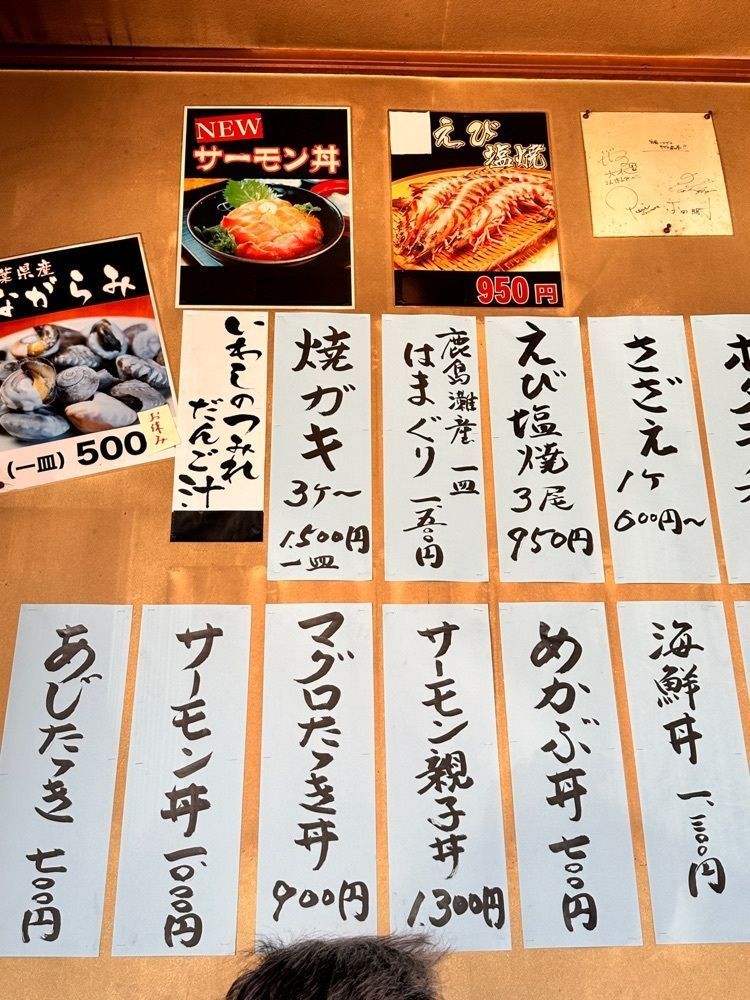 NEW
サーモン丼
えび
塩焼
950円
葉県産
ながらみ
お休み
(一皿) 500
いわしのつみれ
だんご汁
焼ガキ
3ヶ〜
1,500円
一皿
鹿島灘産 一皿
はまぐり 一、五〇〇円
えび塩焼
3尾
950円
さざえ
1ヶ
600円〜
あじたゝき 七〇〇円
サーモン丼 一、〇〇〇円
マグロたゝき丼
900円
サーモン親子丼
1,300円
めかぶ丼 七〇〇円
海鮮丼 一、三〇〇円